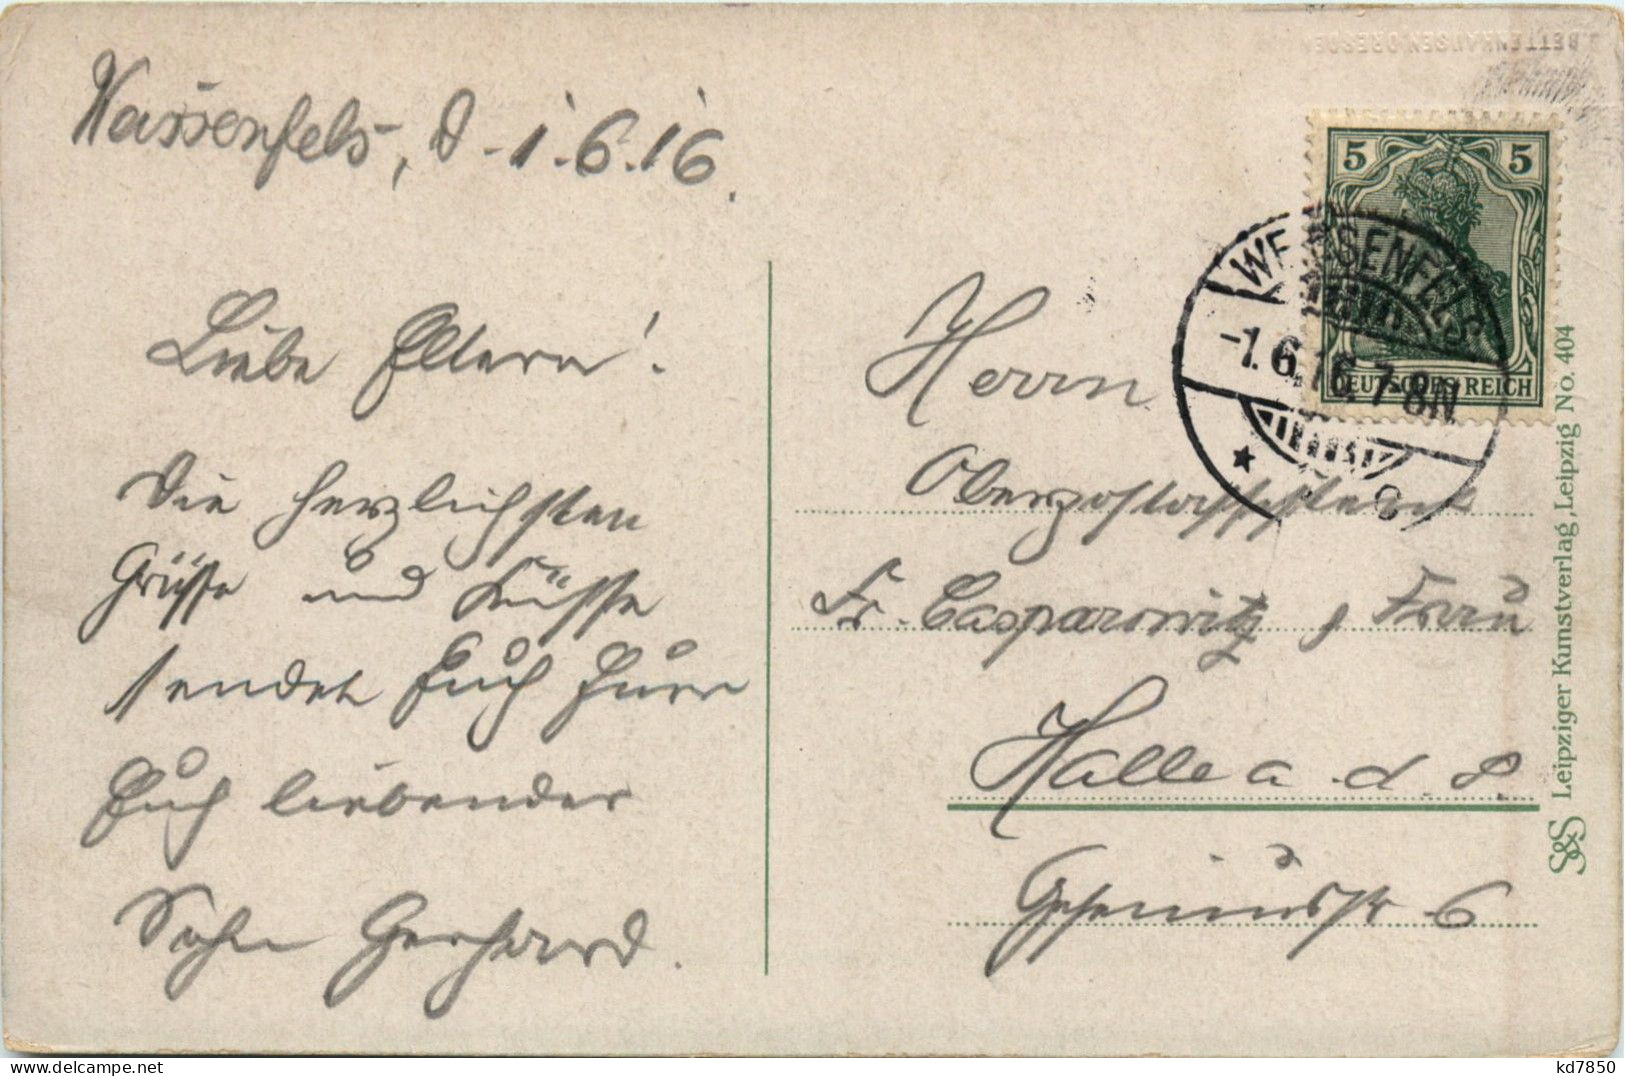 Weissenfels, d. 1.6.16.
Liebe Eltern!
Die herzlichsten
Grüsse und Küsse
sendet Euch Euer
Euch liebender
Sohn Gerhard.
5 5
DEUTSCHES REICH
WEISSENFELS
-1.6.16.7-8N
Herrn
Fr. Casparowitz, Frau
Halle a. d. S.
6
S&S Leipziger Kunstverlag, Leipzig No. 404
BETTENHAUSEN DRESDEN
kd7850